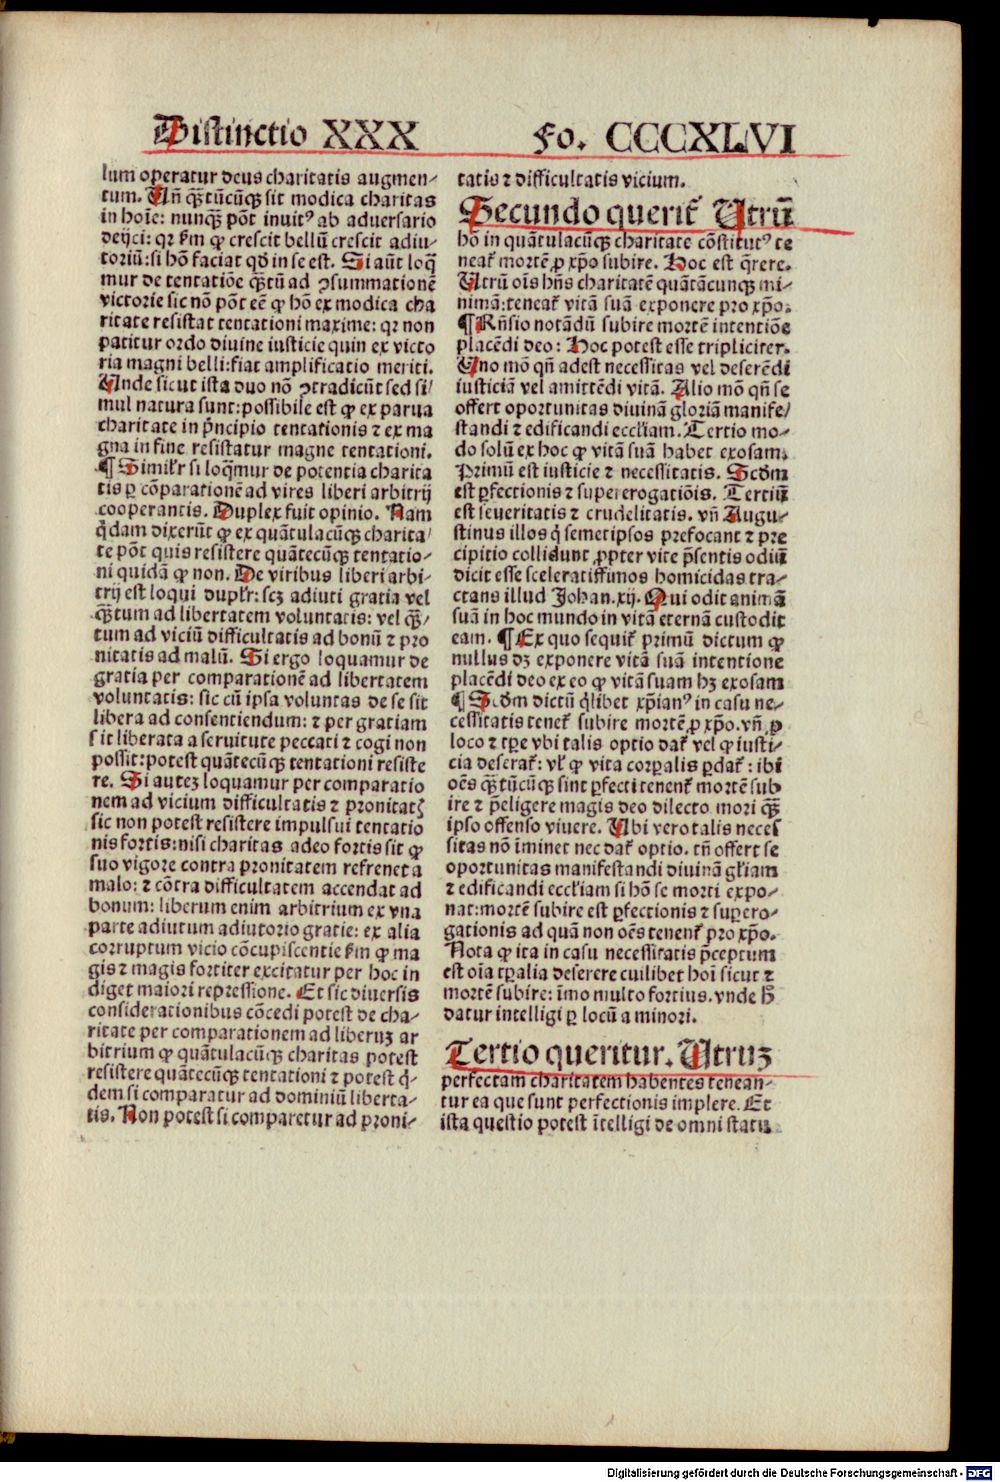 Distinctio XXX Fo. CCCXLVI
lum operatur deus charitatis augmen⸗
tum. Uñ qᷓ̄tũcũqꝫ sit modica charitas
in hoīe: nunqᷓꝫ põt inuitꝰ ab aduersario
deijci: qꝛ ẜm ꝙ crescit bellū crescit adiu⸗
toriū: si hõ faciat qđ in se est. Si aūt loqᷓ
mur de tentatiõe qᷓꝫtū ad ꝯsummationē
victorie sic nõ põt eē ꝙ hõ ex modica cha
ritate resistat tentationi maxime: qꝛ non
patitur ordo diuine iusticie quin ex victo
ria magni belli: fiat amplificatio meriti.
Unde sicut ista duo nõ ꝯtradicūt sed si⸗
mul natura sunt: possibile est ꝙ ex parua
charitate in pͥncipio tentationis ⁊ ex ma
gna in fine resistatur magne tentationi.
¶ Similr̄ si loqᷓmur de potentia charita
tis ꝑ cõparationē ad vires liberi arbitrij
cooperantis. Duplex fuit opinio. Nam
qͥdam dixerūt ꝙ ex quātulacūqꝫ charita⸗
te põt quis resistere quātecūqꝫ tentatio⸗
ni quidā ꝙ non. De viribus liberi arbi⸗
trij est loqui duplr̄: scꝫ adiuti gratia vel
qᷓꝫtum ad libertatem voluntatis: vel qᷓꝫ⸗
tum ad viciū difficultatis ad bonū ⁊ pro
nitatis ad malū. Si ergo loquamur de
gratia per comparationē ad libertatem
voluntatis: sic cū ipsa voluntas de se sit
libera ad consentiendum: ⁊ per gratiam
sit liberata a seruitute peccati ⁊ cogi non
possit: potest quātecūqꝫ tentationi resiste
re. Si autez loquamur per comparatio
nem ad vicium difficultatis ⁊ pronitatꝭ
sic non potest resistere impulsui tentatio
nis fortis: nisi charitas adeo fortis sit ꝙ
suo vigore contra pronitatem refrenet a
malo: ⁊ cõtra difficultatem accendat ad
bonum: liberum enim arbitrium ex vna
parte adiutum adiutorio gratie: ex alia
corruptum vicio cõcupiscentie ẜm ꝙ ma
gis ⁊ magis fortiter excitatur per hoc in
diget maiori repressione. Et sic diuersis
considerationibus cõcedi potest de cha⸗
ritate per comparationem ad liberuꝫ ar
bitrium ꝙ quātulacūqꝫ charitas potest
resistere quātecūqꝫ tentationi ⁊ potest qͥ⸗
dem si comparatur ad dominiū liberta⸗
tis. Non potest si comparetur ad proni⸗
tatis ⁊ difficultatis vicium.
Secundo querit᷑ Utrū
hõ in quātulacūqꝫ charitate cõstitutꝰ te
neat᷑ mortē ꝓ xp̄o subire. Hoc est q̄rere.
Utrū oīs hñs charitatē quātācunqꝫ mi⸗
nimā: teneat᷑ vitā suā exponere pro xp̄o.
¶ Rñsio notādū subire mortē intentiõe
placēdi deo: Hoc potest esse tripliciter.
Uno mõ qñ adest necessitas vel deserēdi
iusticiā vel amittēdi vitā. Alio mõ qñ se
offert oportunitas diuinā gloriā manife⸗
standi ⁊ edificandi eccl̄iam. Tertio mo⸗
do solū ex hoc ꝙ vitā suā habet exosam.
Primū est iusticie ⁊ necessitatis. Scđm
est ꝑfectionis ⁊ supererogatiõis. Tertiū
est seueritatis ⁊ crudelitatis. vñ Augu⸗
stinus illos qͥ semetipsos prefocant ⁊ pre
cipitio collidunt ꝓpter vite p̄sentis odiū
dicit esse sceleratissimos homicidas tra⸗
ctans illud Johan.xij. Qui odit animā
suā in hoc mundo in vitā eternā custodit
eam. ¶ Ex quo sequit᷑ primū dictum ꝙ
nullus dꝫ exponere vitā suā intentione
placēdi deo ex eo ꝙ vitā suam hꝫ exosam
¶ Scđm dictū qͥlibet xp̄ianꝰ in casu ne⸗
cessitatis tenet᷑ subire mortē ꝓ xp̄o. vñ ꝓ
loco ⁊ tp̄e vbi talis optio dat᷑ vel ꝙ iusti⸗
cia deserat᷑: vl̄ ꝙ vita corꝑalis ꝑdat᷑: ibi
oēs qᷓꝫtūcūqꝫ sint ꝑfecti tenent᷑ mortē sub
ire ⁊ p̄eligere magis deo dilecto mori qᷓꝫ
ipso offenso viuere. Ubi vero talis neces
sitas nõ īminet nec dat᷑ optio. tñ offert se
oportunitas manifestandi diuinā gl̄iam
⁊ edificandi eccl̄iam si hõ se morti expo⸗
nat: mortē subire est ꝑfectionis ⁊ suꝑero⸗
gationis ad quā non oēs tenent᷑ pro xp̄o.
Nota ꝙ ita in casu necessitatis p̄ceptum
est oīa tꝑalia deserere cuilibet hoī sicut ⁊
mortē subire: īmo multo fortius. vnde hͦ
datur intelligi ꝑ locū a minori.
Tertio queritur. Utruꝫ
perfectam charitatem habentes tenean⸗
tur ea que sunt perfectionis implere. Et
ista questio potest ītelligi de omni statu
Digitalisierung gefördert durch die Deutsche Forschungsgemeinschaft - DFG